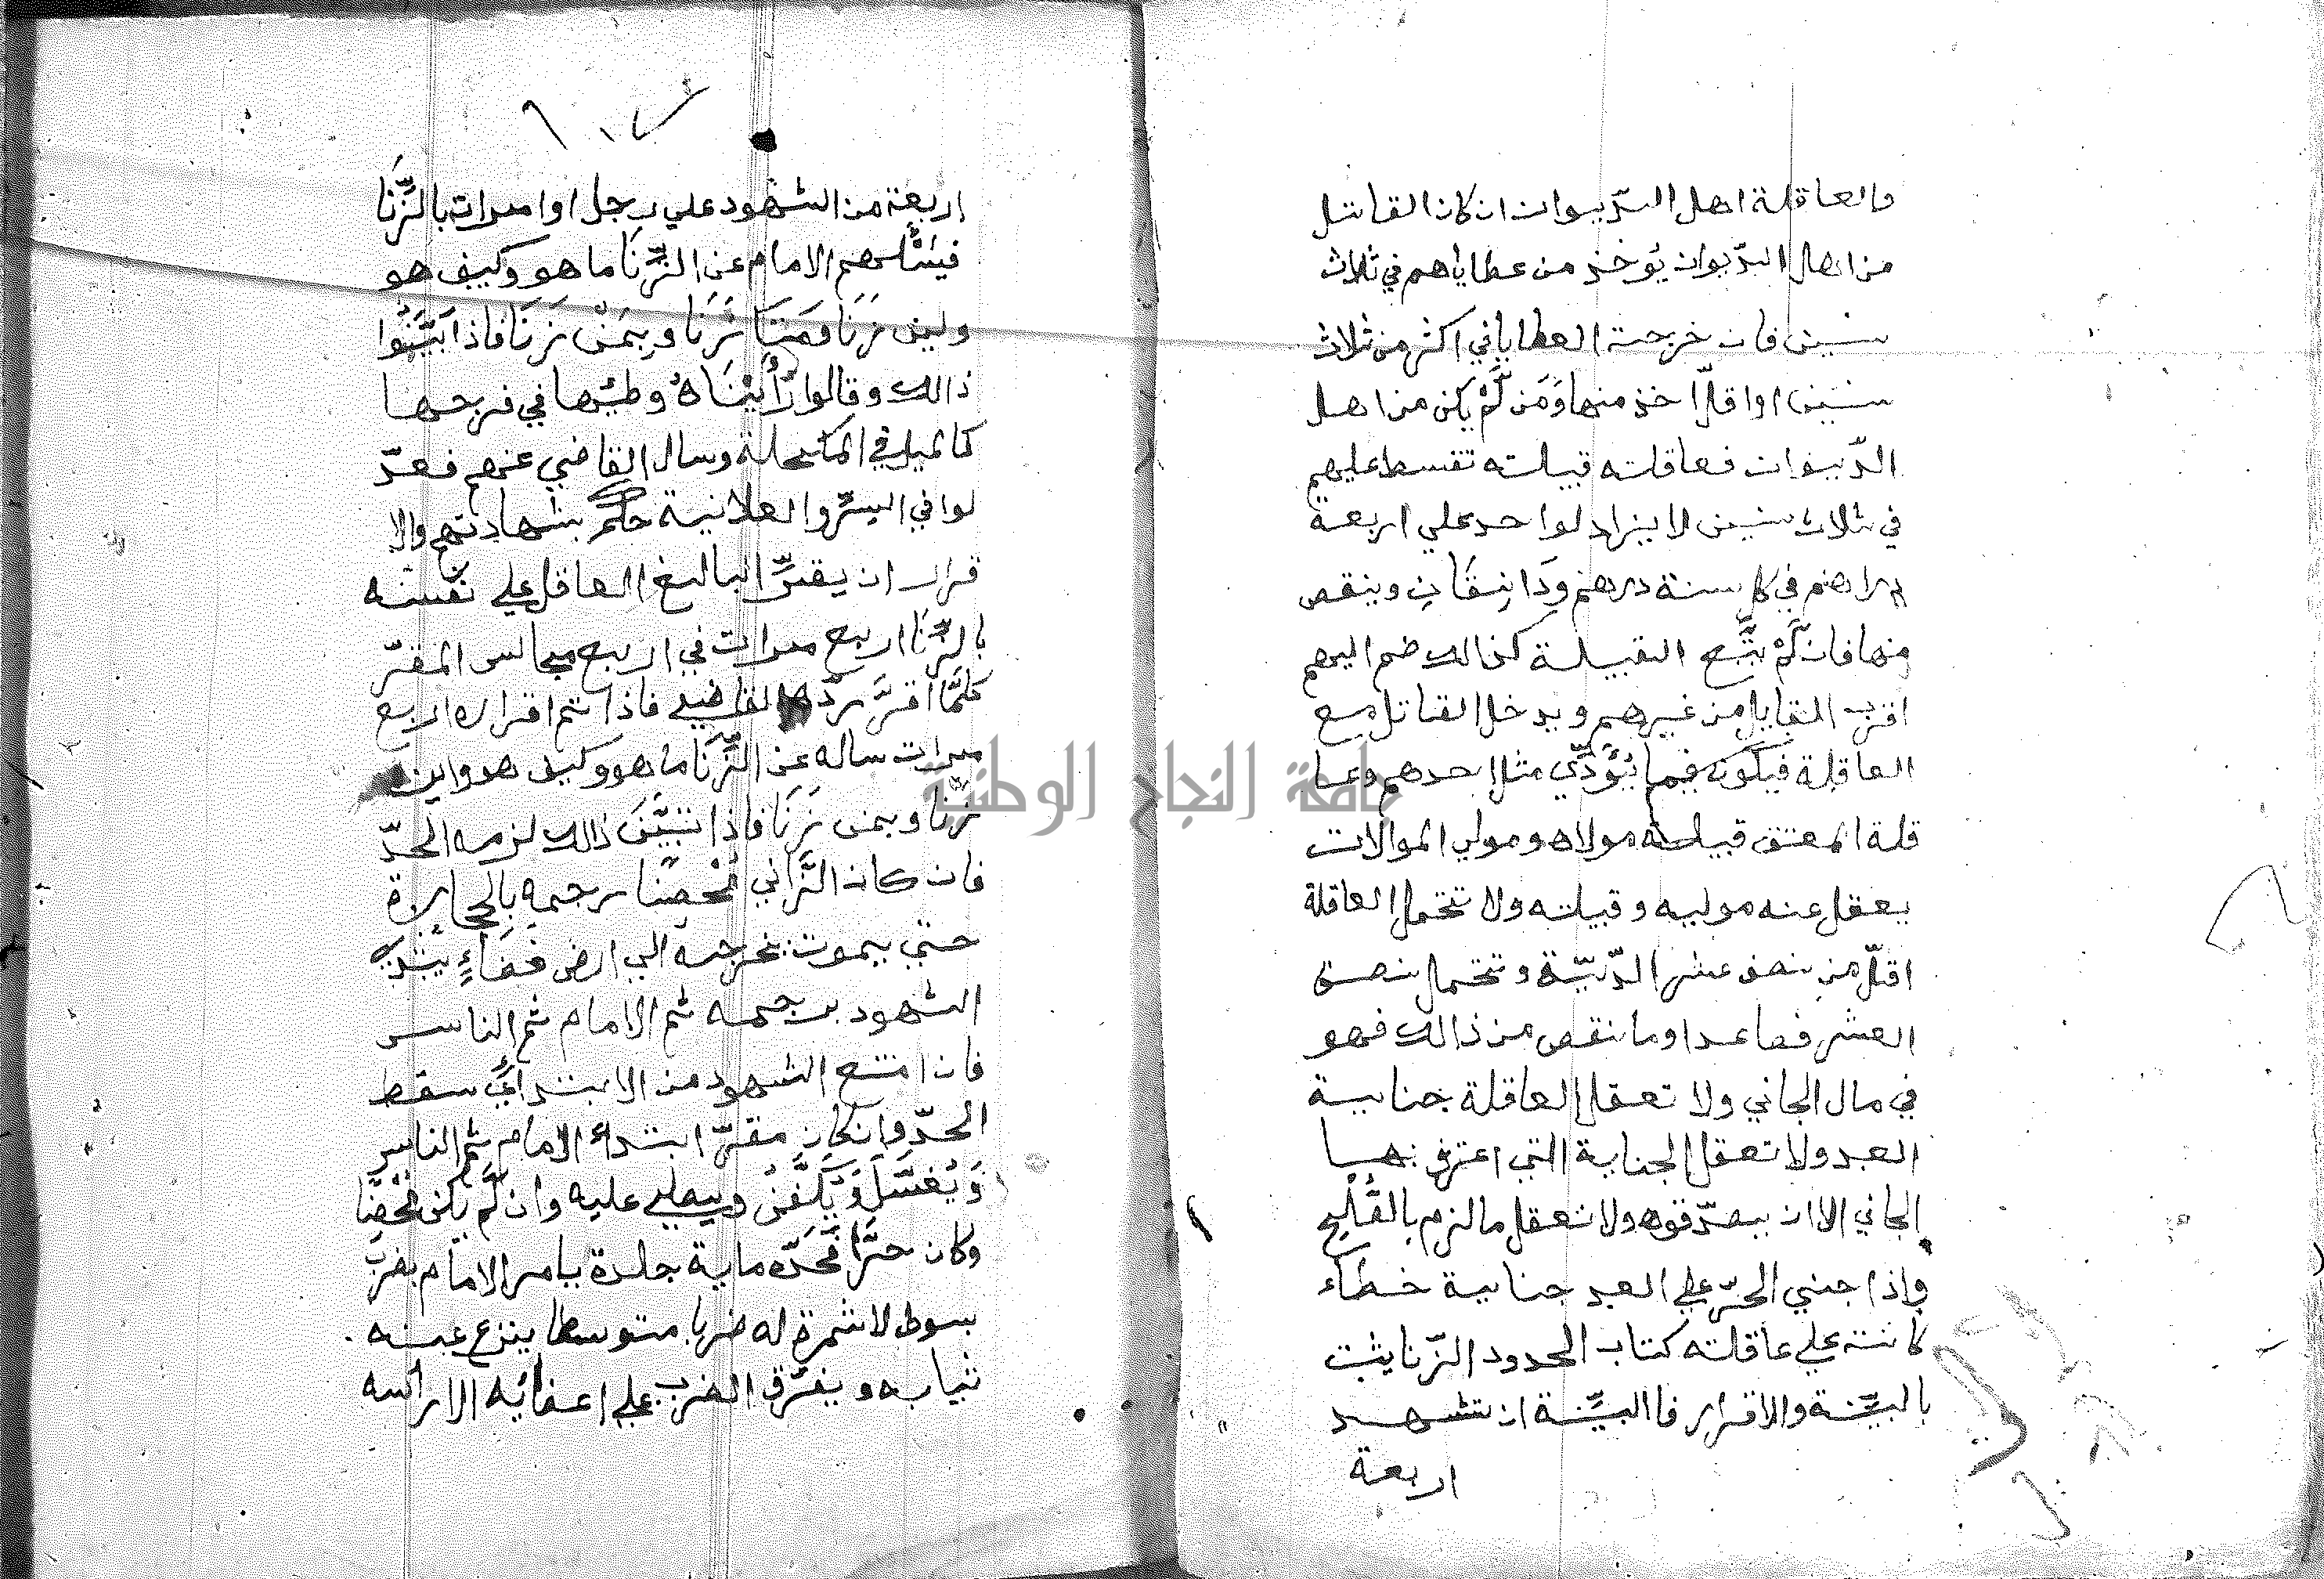 والعاقلة اهل الدّيوان ان كان القاتل
من اهل الدّيوان يُوخذ من عطاياهم في ثلاث
سنين فان خرجة العطايا في اكثر من ثلاث
سنين او اقلّ اخذ منها وَمَن لَّمْ يكن من اهل
الدّيوان فعاقلته قبيلته تقسط عليهم
في ثلاث سنين لا يزاد لواحد علي اربعة
دراهم في كل سنة درهم وَدَانِقَانِ وينقص
منها فان لَّمْ يتّسع القبيلة كذالك ضم اليهم
اقرب القبايل من غيرهم ويدخل القاتل مع
العاقلة فيكون فيما يُؤَدِّي مثل احدهم وعا
قلة المعتق قبيلة مولاه ومولي الموالات
يعقل عنه موليه وقبيلته ولا تتحمل العاقلة
اقلّ من نصف عشر الدّيّة وتتحمل نصف
العشر فصاعدا وما نقص من ذالك فهو
في مال الجاني ولا تعقل العاقلة جناية
العبد ولا تعقل الجناية التي اعترف بها
الجاني الا ان يصدّقوه ولا تعقل ما لزم بالصُّلْحِ
واذا جني الحرّ علي العبد جناية خطاء
كانت علي عاقلته كتاب الحدود الزّنا يثبت
بالبيّنة والاقرار فاالبيّنة ان تشهد
اربعة
اربعة من الشهود علي رجل او امرات بالزِّنَا
فيسْئَلهم الامام عن الزِّنَا ما هو وكيف هو
واين زَنَا وَمَتَا زَنَا وبِمَنْ زَنَا فاذا بَيَّنُوا
ذالك وقالوا رَأَيْنَاهُ وطيها في فرجها
كالميل في المكحلة وسال القاضي عنهم فعدّ
لوا في السِّرِّ والعلانية حكم بشهادتهم والا
قرار ان يقرّ البالغ العاقل علي نفسه
بالزّنا اربع مرات في اربع مجالس المقرّ
كلّمَا اقرّ ردّه القاضي فاذا تم اقراره اربع
مرات ساله عن الزِّنَا ما هو وكيف هو واين
زَنَا وبمن زَنَا فاذا تبيَّنَ ذالك لزمه الحدّ
فان كان الزَّاني مُحْصِنًا رجمه بِالحجارة
حتي يموت يخرجه الي ارض فضاءٍ يبتدي
الشهود برجمه ثم الامام ثم الناس
فان امتنع الشهود من الابتدائي سقط
الحدّ وان كان مقرّ ابتداء الامام ثم الناس
وَيُغَسَّلُ وَيُكَفَّنُ ويصلي عليه وان لَّم يكن مُحْصِنًا
وكان حرًّا فَحَدّه ماية جلدة يامر الامام بضرب
بسوط لا ثمرة له ضربا متوسطا ينزع عنه
ثيابه ويفرّق الضرب علي اعضائه الا راسه
جامعة النجاح الوطنية